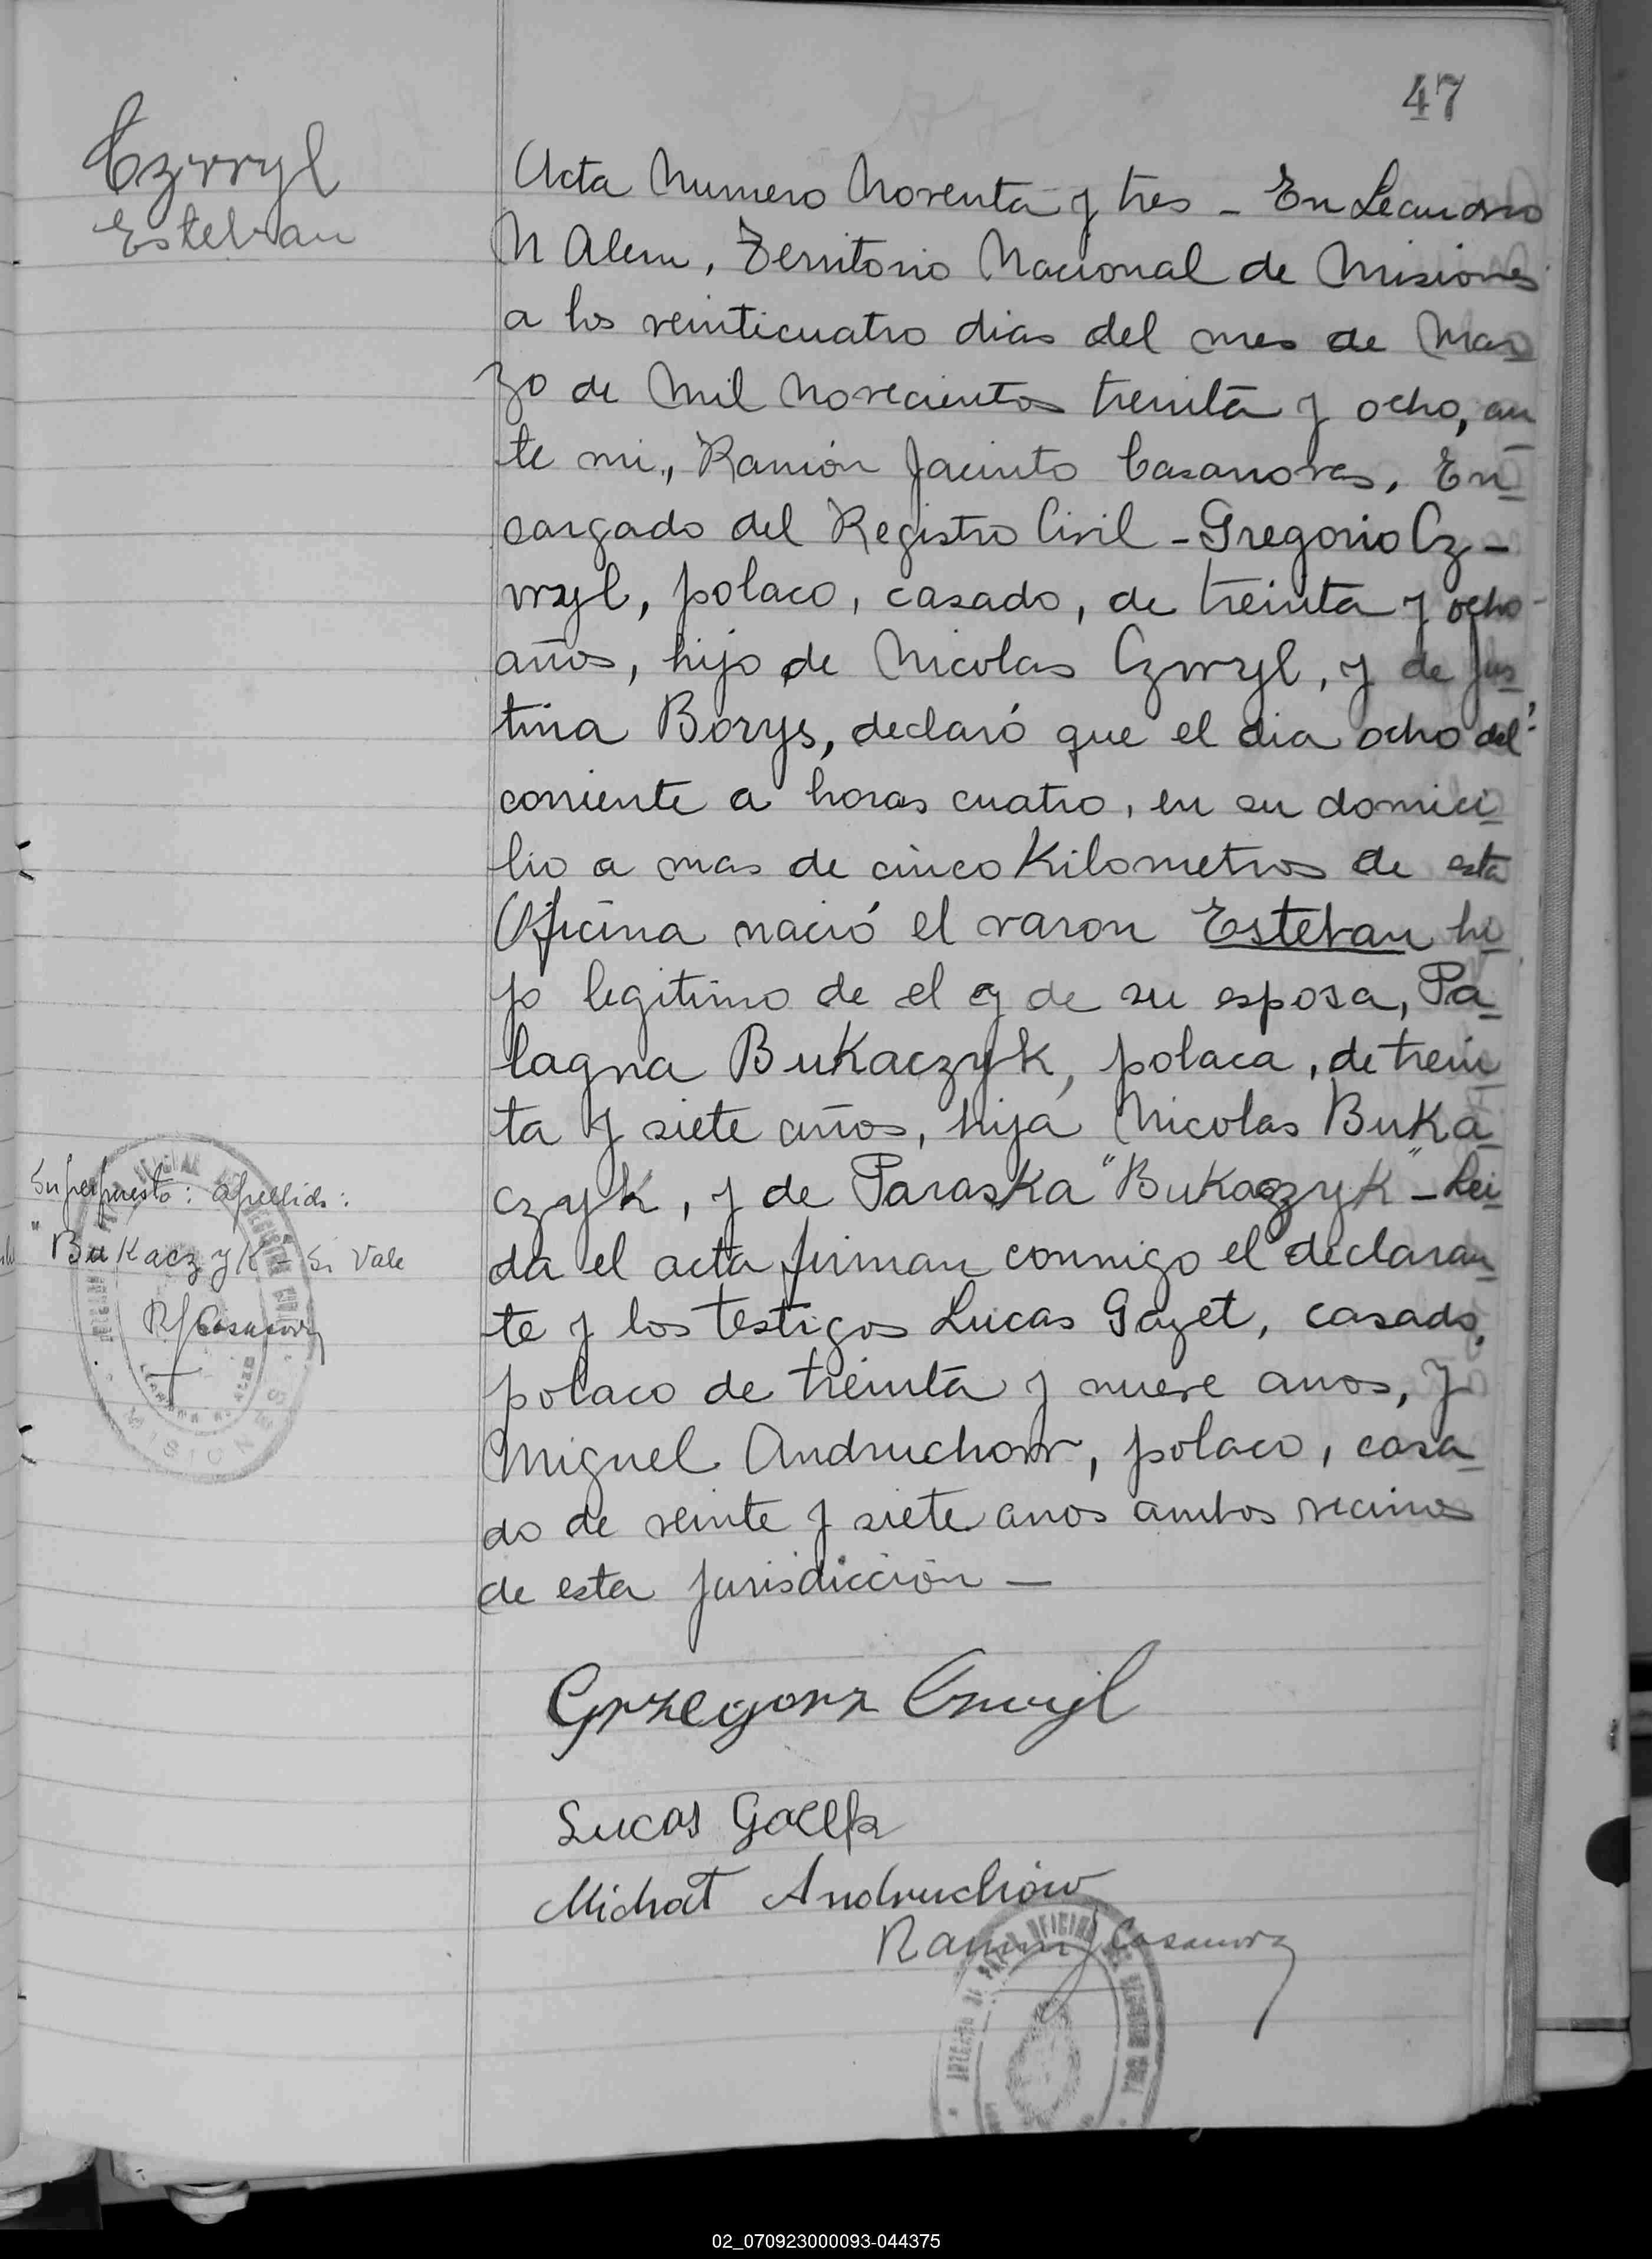 47
Czwyl
Esteban
Acta Numero Noventa y tres - En Leandro
N Alem, Territorio Nacional de Misiones
a los veinticuatro dias del mes de Mar
zo de Mil Novecientos treinta y ocho, an
te mi, Ramón Jacinto Casanovas, En
cargado del Registro Civil - Gregorio Cz-
wyl, polaco, casado, de treinta y ocho
años, hijo de Nicolas Czwyl, y de Jus
tina Borys, declaró que el dia ocho del
corriente a horas cuatro, en su domici
lio a mas de cinco Kilometros de esta
Oficina nació el varon Estevan hi
jo legitimo de el y de su esposa, Pa
lagna Bukaczyk, polaca, de trein
ta y siete años, hija Nicolas Buka
czyk, y de Paraska "Bukaczyk" - Lei
da el acta firman conmigo el declaran
te y los testigos Lucas Gazet, casado,
polaco de treinta y nueve anos, y
Miguel Andruchow, polaco, casa
do de veinte y siete anos ambos vecinos
de esta jurisdicción -
Superpuesto: apellido:
"Bukaczyk" Si Vale
RJCasanova
MISIONES
Grzegorz Czwyl
Lucas
Michał Andruchów
Ramon J Casanova
02_070923000093-044375